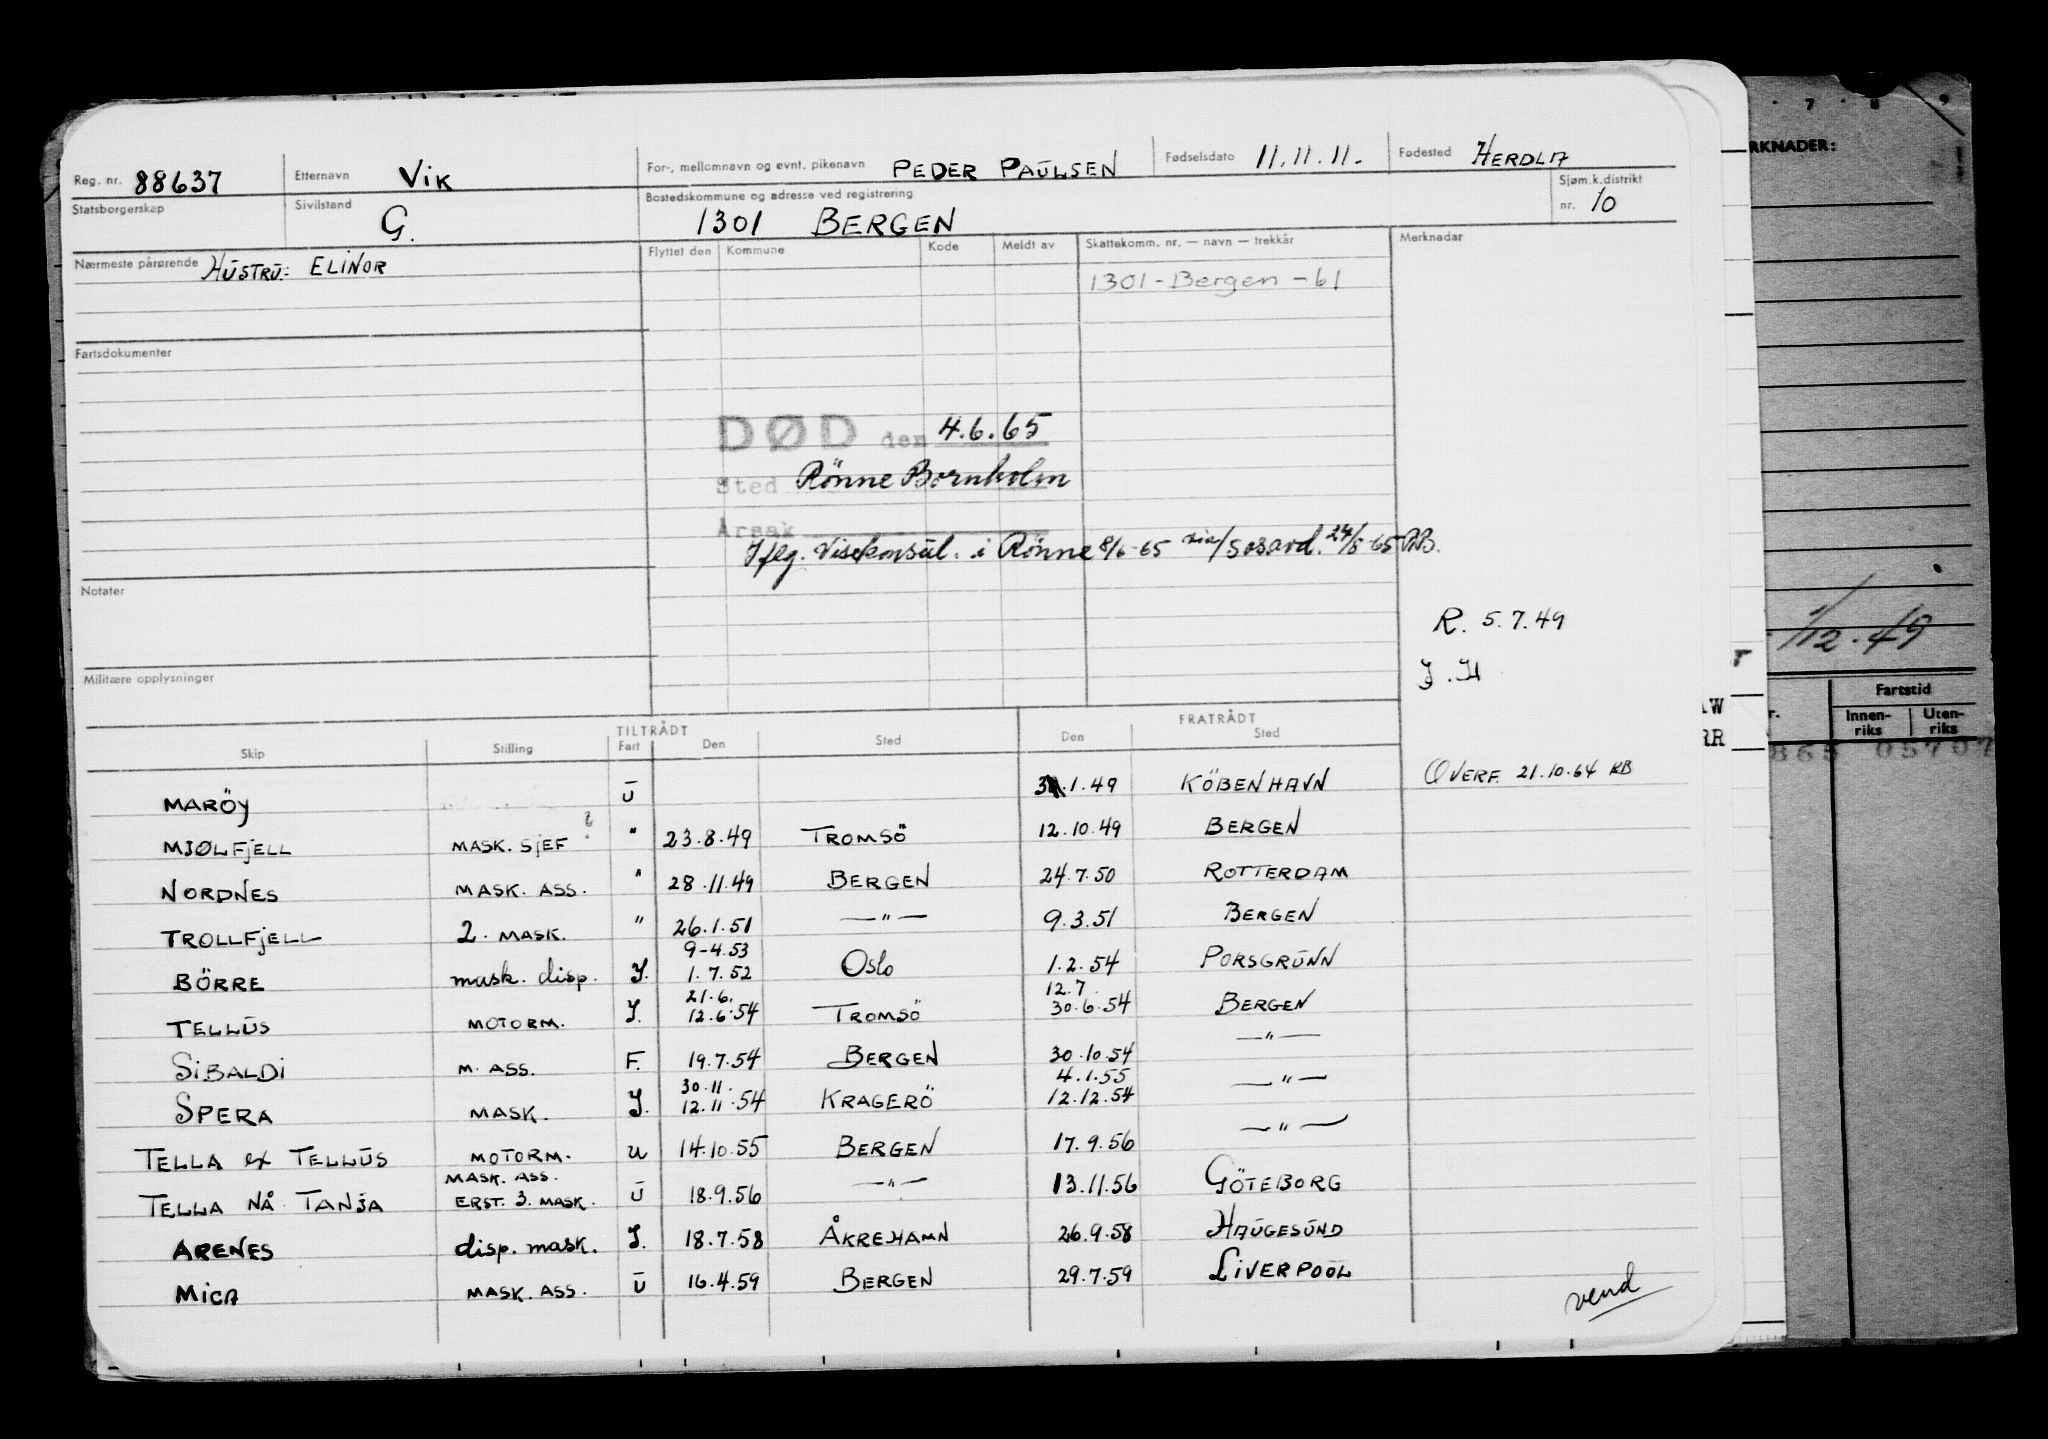 Reg. nr. 88637 Etternavn VIK For-, mellomnavn og evnt. pikenavn PEDER PAULSEN Fødselsdato 11.11.11. Fødested HERDLA
Statsborgerskap Sivilstand G. Bostedskommune og adresse ved registrering 1301 BERGEN Sjøm.k.distrikt nr. 10
Nærmeste pårørende HUSTRU: ELINOR Flyttet den Kommune Kode Meldt av Skattekomm. nr. — navn — trekkår Merknader
1301 - Bergen - 61
Fartsdokumenter
DØD den 4.6.65
Sted Rönne Bornholm
Årsak
Iflg. Visekonsul. i Rönne 8/6-65 24/8-65
Notater
R. 5.7.49
Militære opplysninger
J.H
TILTRÅDT FRATRÅDT
Skip Stilling Fart Den Sted Den Sted
OVERF. 21.10.64 KB
MARÖY U .1.49 KÖBENHAVN
MJØLFJELL MASK. SJEF " 23.8.49 TROMSÖ 12.10.49 BERGEN
NORDNES MASK. ASS. " 28.11.49 BERGEN 24.7.50 ROTTERDAM
TROLLFJELL 2. MASK. " 26.1.51 —"— 9.3.51 BERGEN
9-4.53
BÖRRE mask. disp. I. 1.7.52 Oslo 1.2.54 PORSGRUNN
21.6. 12.7.
TELLUS MOTORM. I. 12.6.54 TROMSÖ 30.6.54 BERGEN
SIBALDI M. ASS. F. 19.7.54 BERGEN 30.10.54 —"—
30.11. 4.1.55
SPERA MASK. I. 12.11.54 KRAGERÖ 12.12.54 —"—
TELLA ex TELLUS MOTORM. U 14.10.55 BERGEN 17.9.56 —"—
MASK. ASS.
TELLA NÅ TANJA ERST. 3. MASK. U 18.9.56 —"— 13.11.56 GÖTEBORG
ARENES disp. mask. I. 18.7.58 ÅKREHAMN 26.9.58 HAUGESUND
MICA MASK. ASS. U 16.4.59 BERGEN 29.7.59 LIVERPOOL
vend
7 8 9
RKNADER:
1/12.49
Fartstid
Innen-riks Uten-riks
865 05707